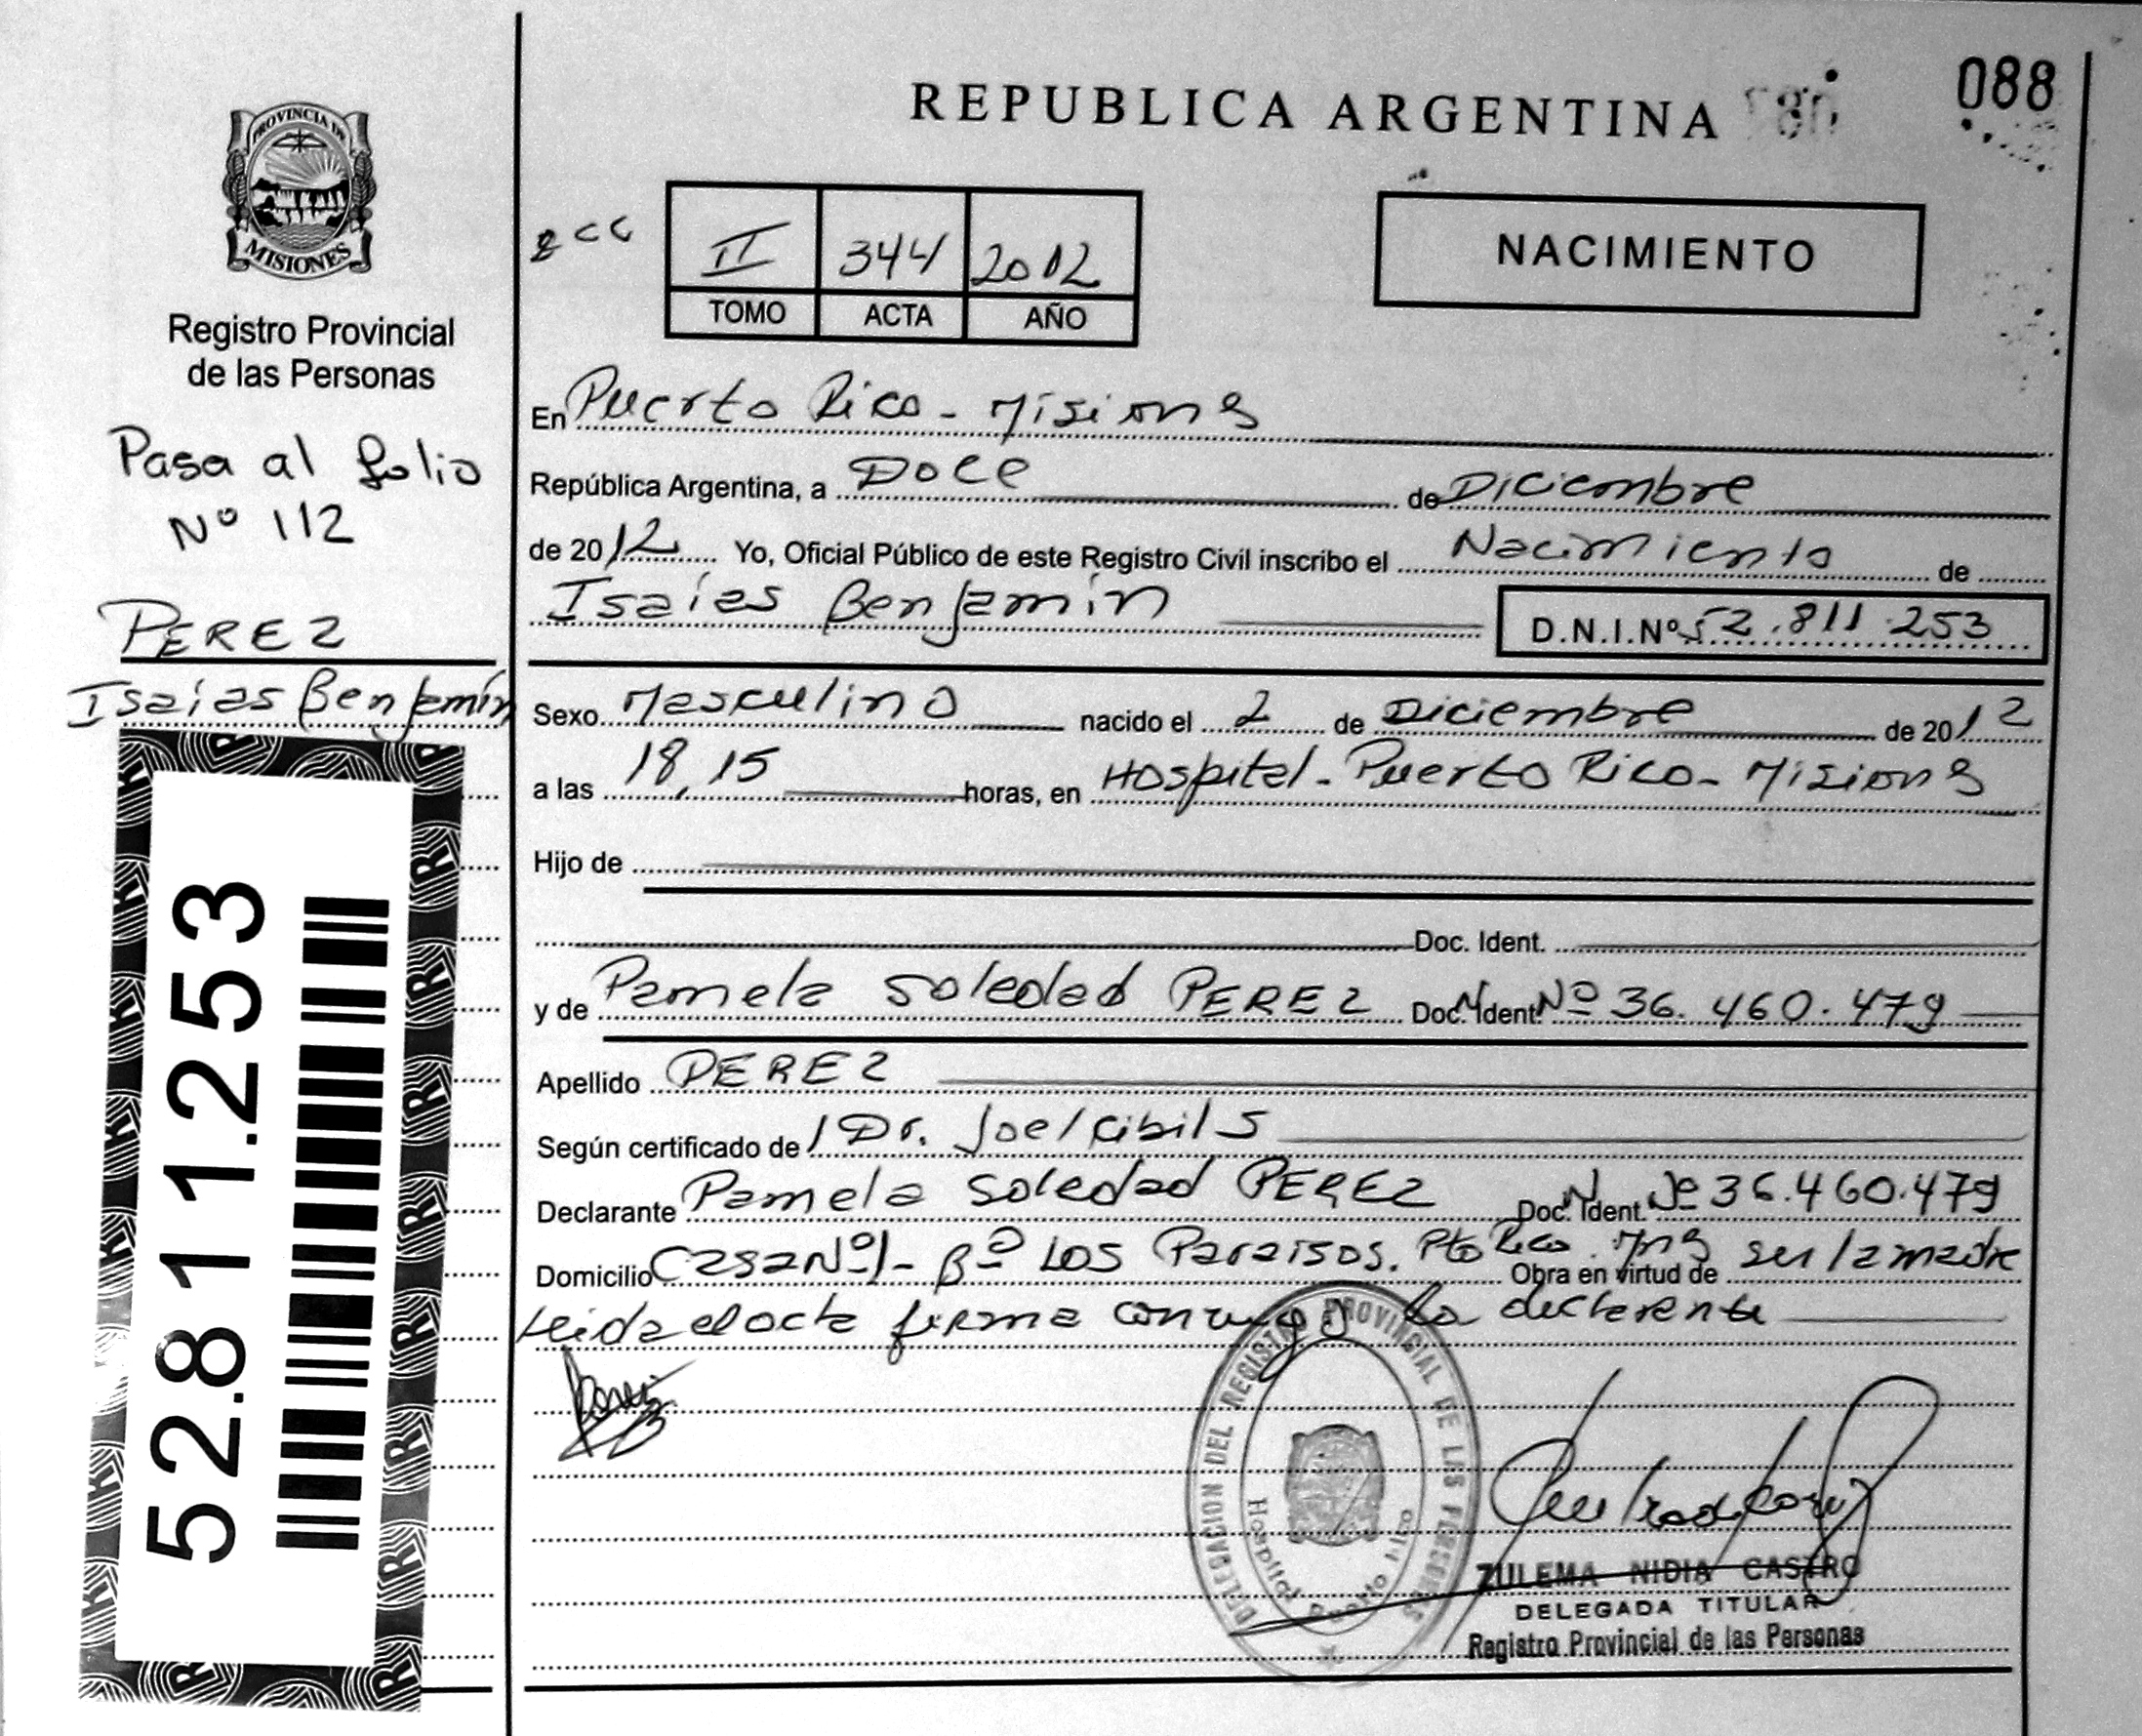 REPUBLICA ARGENTINA
088
PROVINCIA DE
MISIONES
Registro Provincial
de las Personas
Pasa al folio
Nº 112
PEREZ
Isaías Benjamín
52.811.253
II 344 2012
TOMO ACTA AÑO
NACIMIENTO
En Puerto Rico - Misiones
República Argentina, a Doce de Diciembre
de 2012 Yo, Oficial Público de este Registro Civil inscribo el Nacimiento de
Isaías Benjamín D.N.I.Nº 52.811.253
Sexo Masculino nacido el 2 de Diciembre de 2012
a las 18,15 horas, en Hospital - Puerto Rico - Misiones
Hijo de
Doc. Ident.
y de Pamela Soledad PEREZ Doc. Ident. Nº 36.460.479
Apellido PEREZ
Según certificado de Dr. Joel Cibils
Declarante Pamela Soledad PEREZ Doc. Ident. Nº 36.460.479
Domicilio Casa Nº1 - Bº Los Paraisos. Pto Rico. Mnes Obra en virtud de ser la madre
Leida el acta firma conmigo la declarante
DELEGACION DEL REGISTRO PROVINCIAL DE LAS PERSONAS
Hospital Puerto Rico
ZULEMA NIDIA CASTRO
DELEGADA TITULAR
Registro Provincial de las Personas